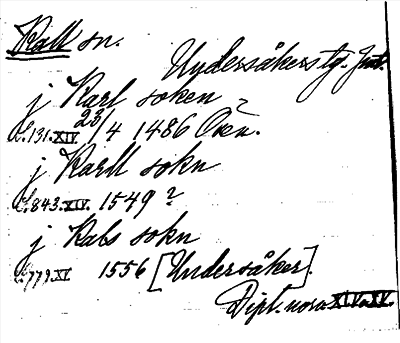 Kall sn.
Undersåkers tg. Jmt.
j Karl soken
s.131.XIV 23/4 1486 Oven.
j Karll sokn
s.843.XIV. 1549 ?
j Kals sokn
s.779.XV 1556 [Undersåker].
Dipl. norv. XIV o XV.